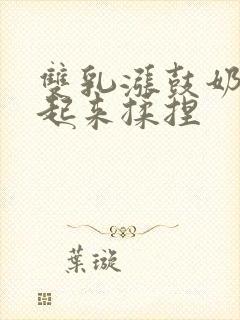 雙乳漲鼓奶
起来揉捏
葉璇